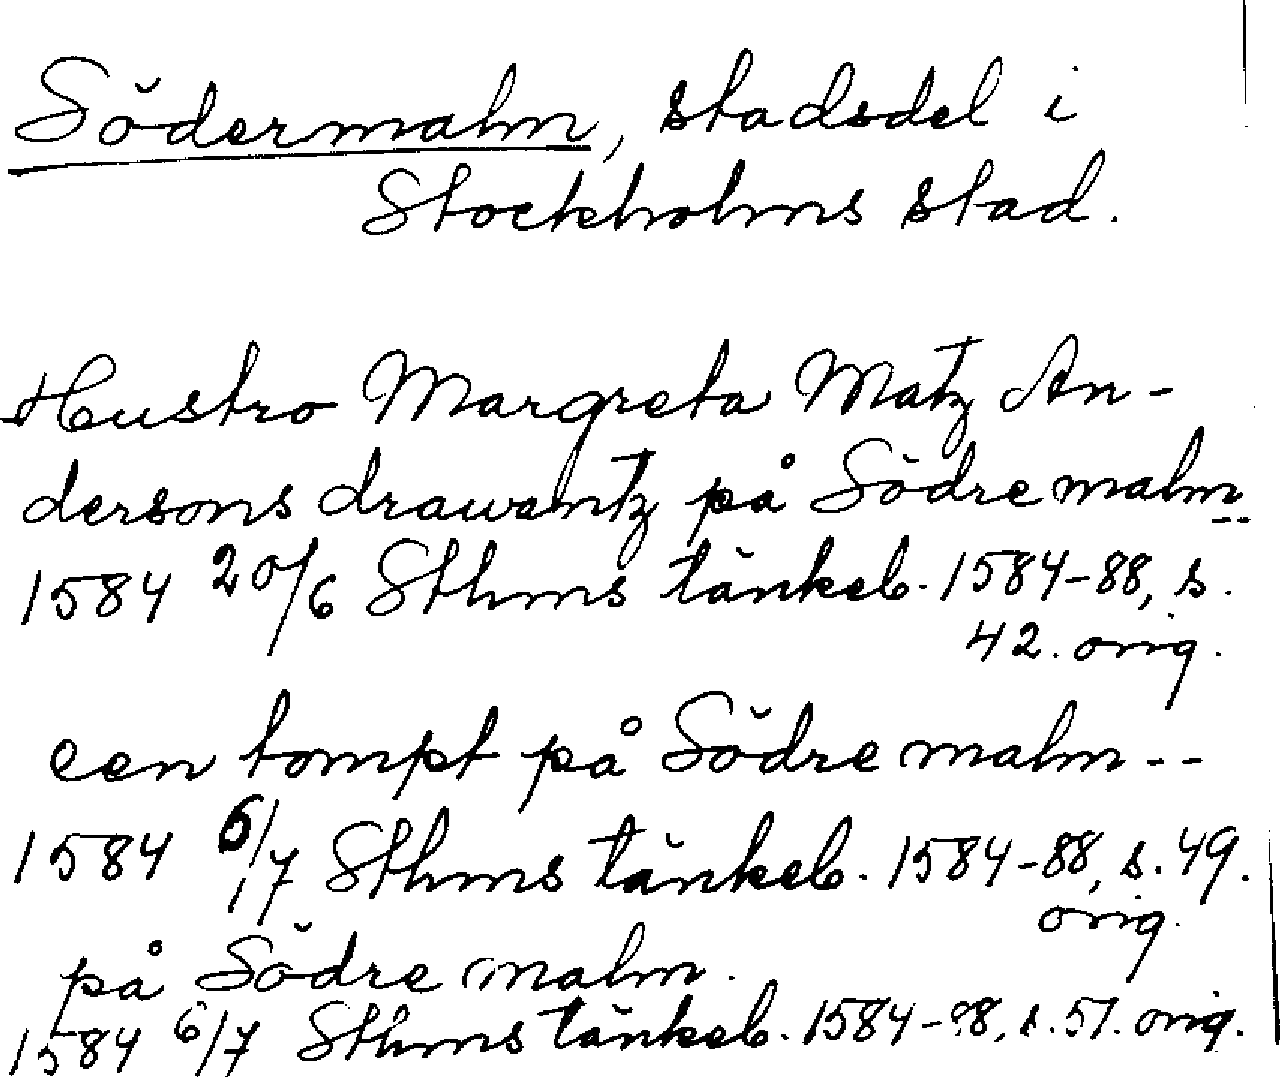 Södermalm, stadsdel i
Stockholms stad.
Hustro Margreta Matz An-
dersons drawantz på Södre malm --
1584 20/6 Sthms tänkeb. 1584-88, s.
42. orig.
een tompt på Södre malm --
1584 6/7 Sthms tänkeb. 1584-88, s. 49.
orig.
på Södre malm.
1584 6/7 Sthms tänkeb. 1584-88, s. 51. orig.